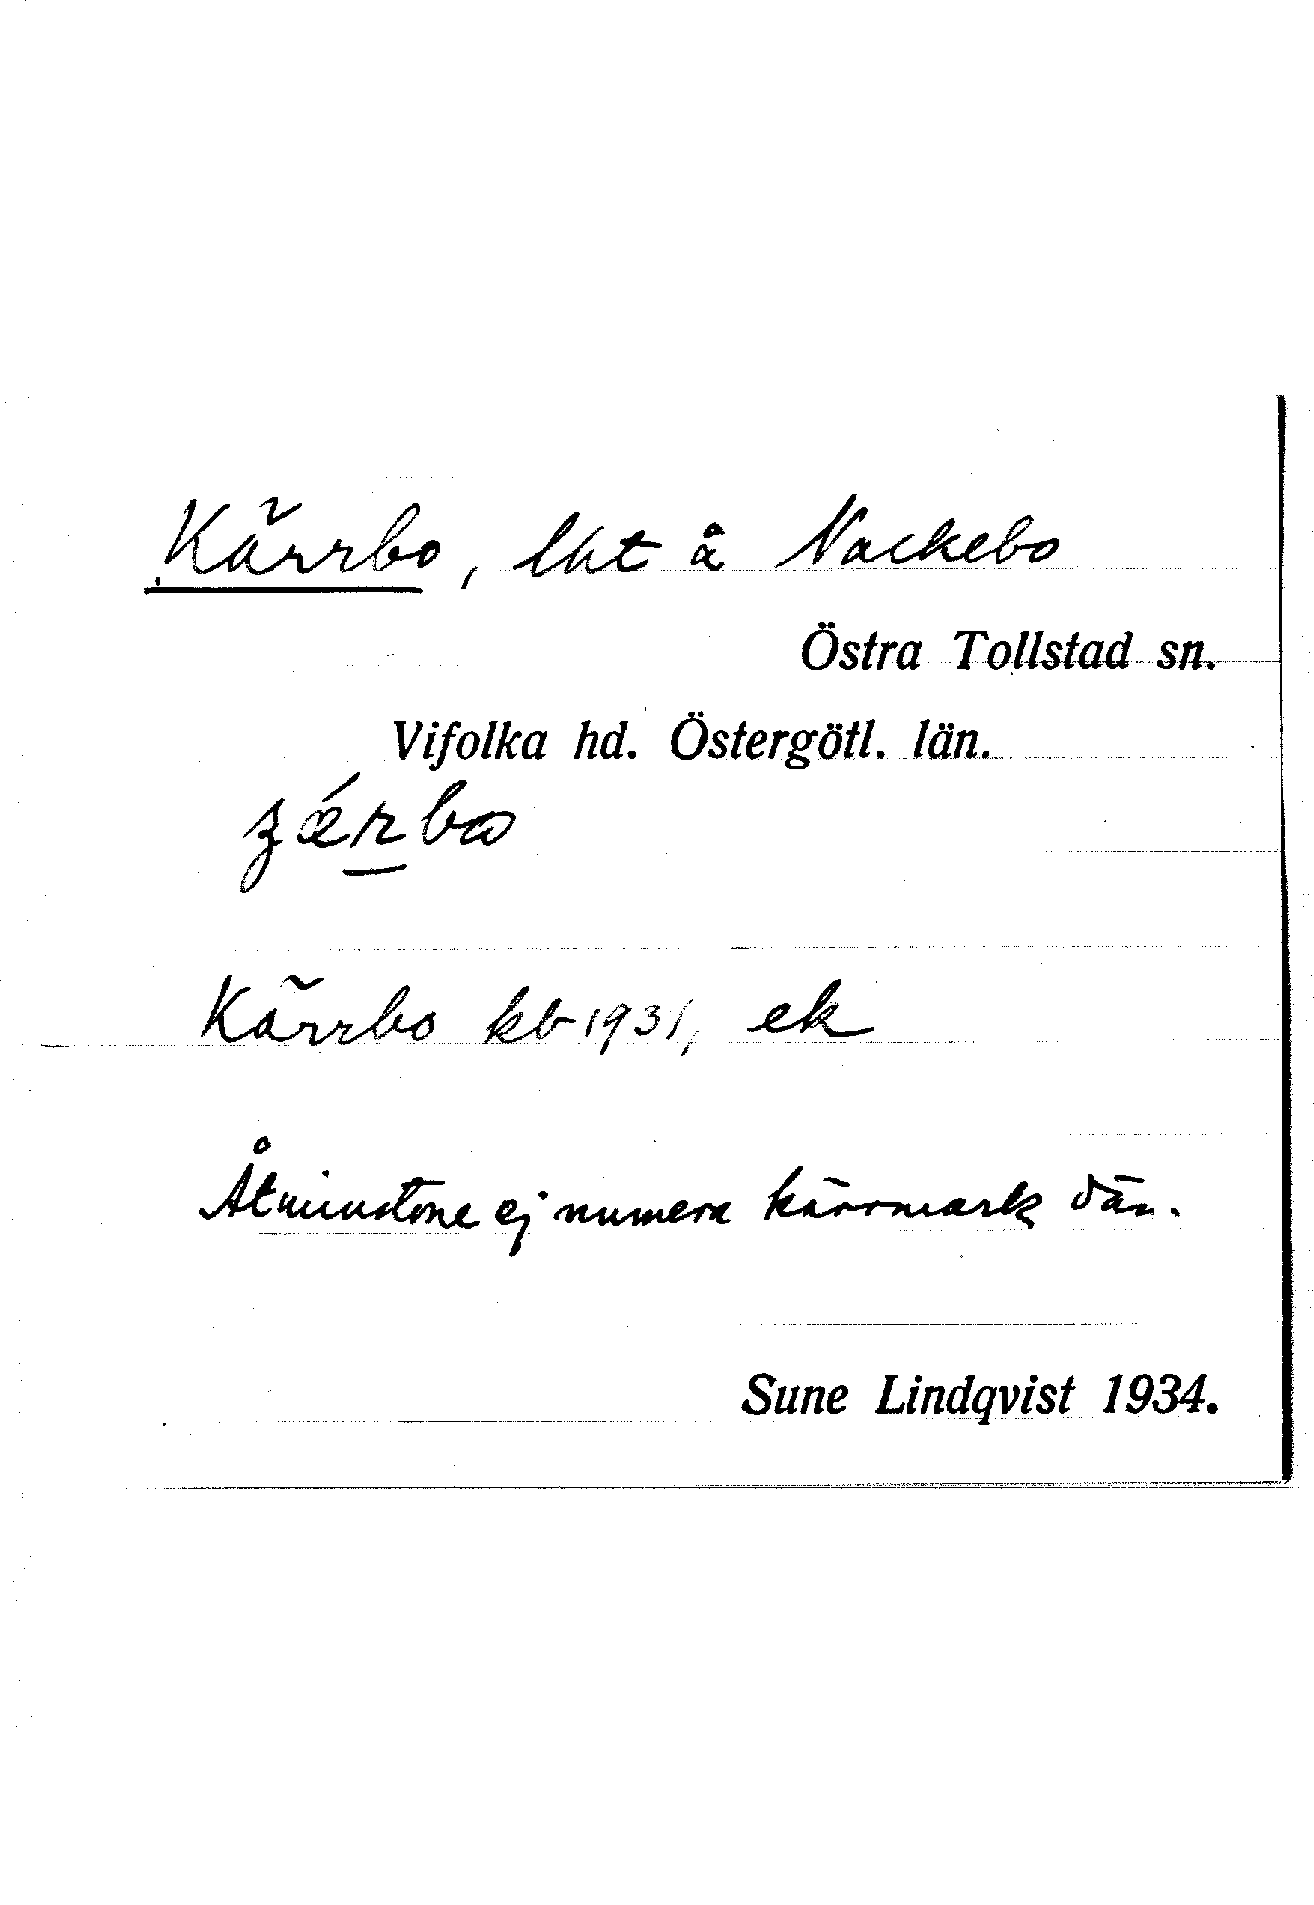 Kärrbo, lht å Nackebo
Östra Tollstad sn.
Vifolka hd. Östergötl. län.
Kärrbo kb 1931, ek
Åtminstone ej numera kärrmark där.
Sune Lindqvist 1934.